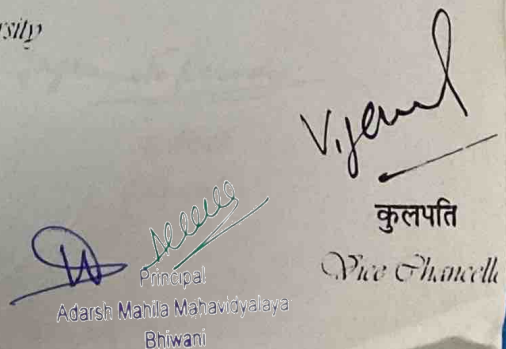 rsity
कुलपति
Vice Chancelle
Principal
Adarsh Mahila Mahavidyalaya
Bhiwani